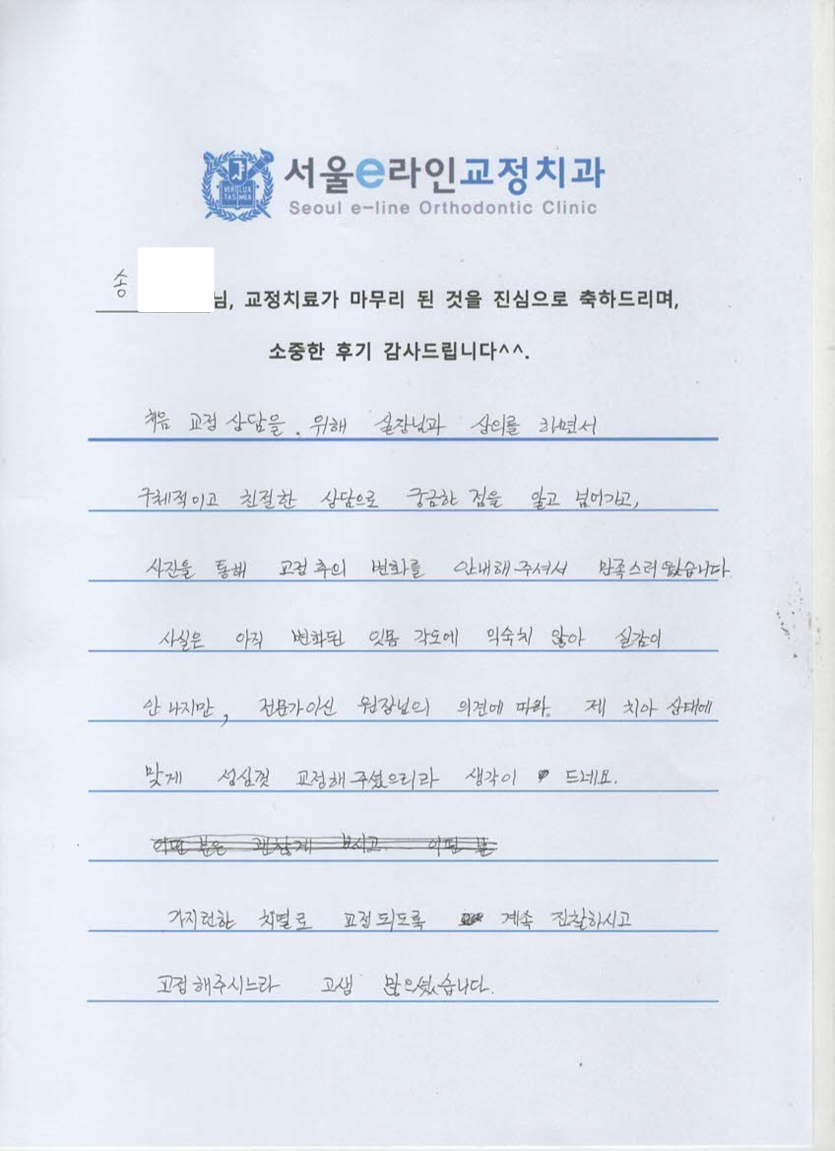 서울e라인교정치과
Seoul e-line Orthodontic Clinic
VERI LUX
TAS MEA
송 님, 교정치료가 마무리 된 것을 진심으로 축하드리며,
소중한 후기 감사드립니다^^.
처음 교정 상담을. 위해 실장님과 상의를 하면서
구체적이고 친절한 상담으로 궁금한 점을 알고 넘어가고,
사진을 통해 교정 후의 변화를 안내해 주셔서 만족스러웠습니다.
사실은 아직 변화된 잇몸 각도에 익숙치 않아 실감이
안 나지만, 전문가이신 원장님의 의견에 따라. 제 치아 상태에
맞게 성심껏 교정해 주셨으리라 생각이 드네요.
어떤 분은 괜찮게 보시고. 어떤 분
가지런한 치열로 교정되도록 계속 진찰하시고
교정해주시느라 고생 많으셨습니다.